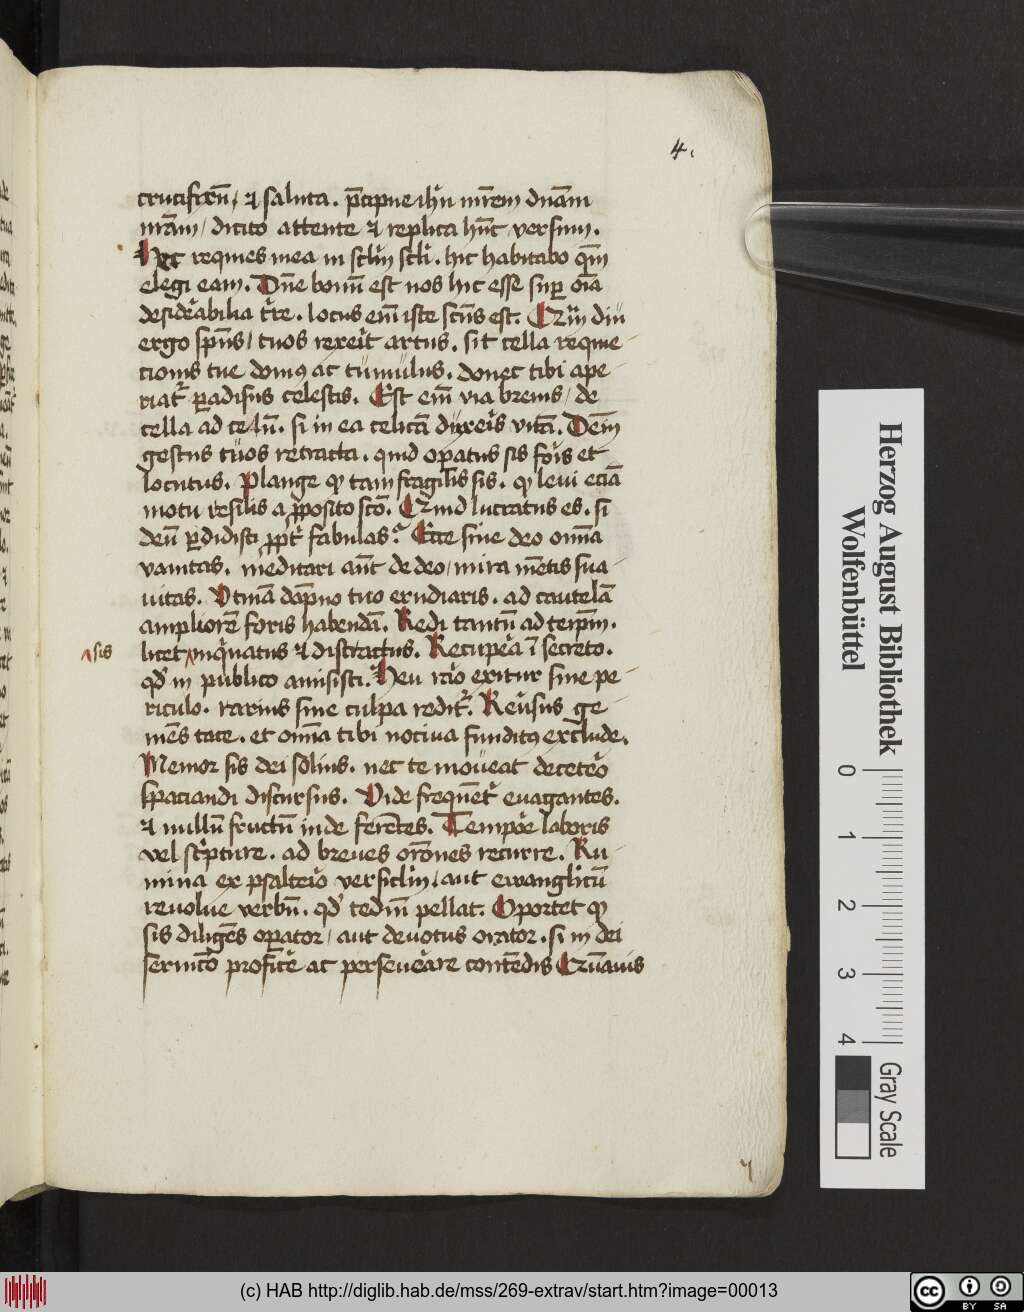 4.
crucifixū, ⁊ saluta. p̄cipue ihū mr̄em dn̄am
nr̄am / dicito attente ⁊ replica hūc versum.
Hec requies mea in sclm̄ scli. hic habitabo qm̄
elegi eam. Dn̄e bonū est nos hic esse sup oīa
desid'abilia tr̄e. locus em̄ iste scūs est.
ergo spūs / tuos rexerit artus. sit cella requie
cionis tue domꝰ ac tumulus. donec tibi ape
riat' paradisus celestis. Est em̄ via brevis / de
cella ad celū. si in ea celicā duxeis vitā. Dem̄
gestus tuos retracta. quid opatus sis foris et
locutus. Plange qꝫ tam fragilis sis. qꝫ levi eciā
motu resilis a pposito sco. Quid lucratus es. si
deū pdidisti ppt' fabulas? Ecce sine deo omnia
vanitas. meditari aut de deo / mira mētis sua
vitas. Utinā dāpno tuo erudiaris. ad cautelā
ampliorē foris habendā. Redi tantū ad teipm̄.
sis
licet inq'natus ⁊ distractus. Recupea ī secreto.
qd' in publico amisisti. Heu raro exitur sine pe
riculo. rarius sine culpa redit'. Reusus ge
mēs tace. et omīa tibi nociua funditꝰ exclude.
Memor sis dei solius. nec te moueat decetero
spaciandi discursus. Vide frequēt' euagantes.
⁊ nullū fructū inde ferētes. Tempoe laboris
vel sc'pture. ad breues orōnes recurre. Ru
mina ex psalterio versiclm̄ / aut ewangelicū
reuolue verbū. qd' tediū pellat. Oportet qꝫ
sis diligēs opator / aut deuotus orator. si in dei
seruicō proficē ac perseueare contēdis
Herzog August Bibliothek
Wolfenbüttel
0 1 2 3 4
Gray Scale
(c) HAB http://diglib.hab.de/mss/269-extrav/start.htm?image=00013
cc BY SA